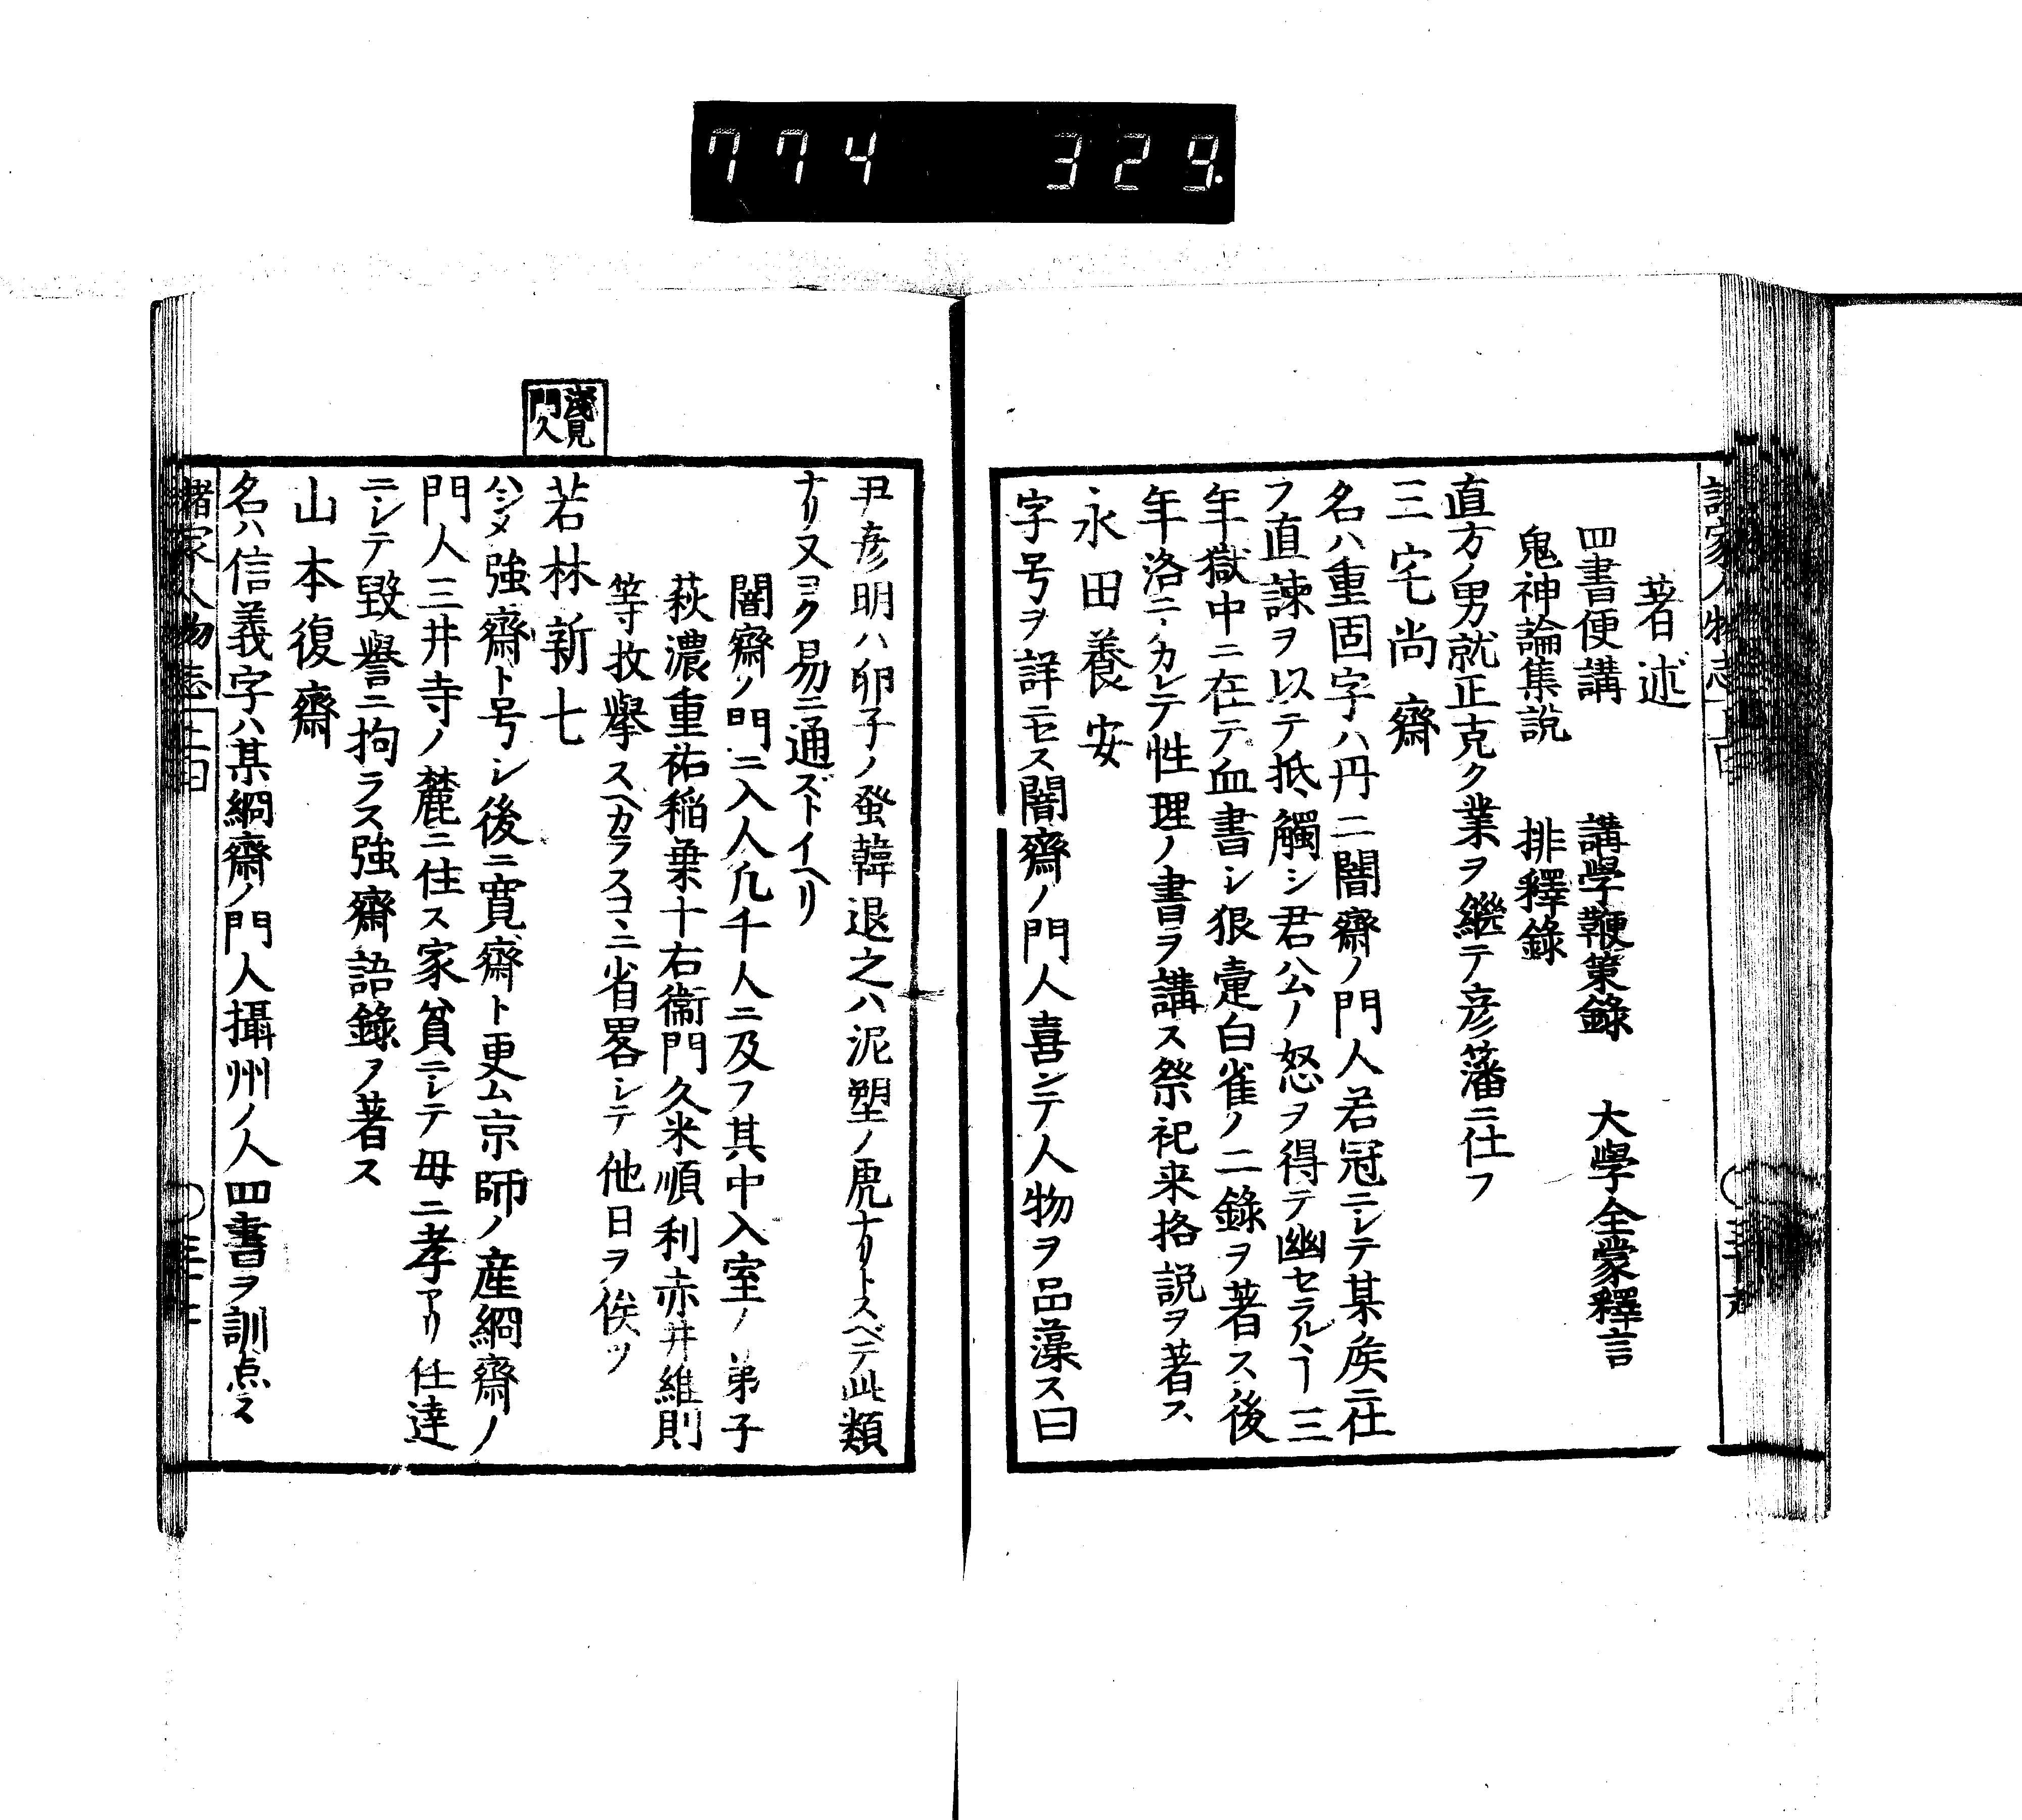 774 329.
著述
四書便講 講學鞭策錄 大學全蒙釋言
鬼神論集說 排釋錄
直方ノ男就正克ク業ヲ繼テ彦藩ニ仕フ
三宅尚齋
名ハ重固字ハ丹二闇齋ノ門人若冠ニシテ某矦ニ仕
フ直諫ヲ以テ抵觸シ君公ノ怒ヲ得テ幽セラルヿ三
年獄中ニ在テ血書シ狼疐白雀ノ二錄ヲ著ス後
年洛ニカレテ性理ノ書ヲ講ス祭祀来格説ヲ著ス
永田養安
字号ヲ詳ニセス闇齋ノ門人喜ンテ人物ヲ品藻ス曰
尹彦明ハ卵子ノ蛩韓退之ハ泥塑ノ虎ナリトスベテ此類
ナリ又ヨク易ニ通ズトイヘリ
闇齋ノ門ニ入人凢千人ニ及フ其中入室ノ弟子
萩濃重祐稲葉十右衞門久米順利赤井維則
等枚擧スヘカラスコヽニ省畧シテ他日ヲ俟ツ
淺見
門人
若林新七
ハジメ強齋ト号シ後ニ寛齋ト更ム京師ノ産絅齋ノ
門人三井寺ノ麓ニ住ス家貧ニシテ母ニ孝アリ任達
ニシテ毀譽ニ拘ラス強齋語錄ヲ著ス
山本復齋
名ハ信義字ハ某絅齋ノ門人攝州ノ人四書ヲ訓点ス
諸家人物志